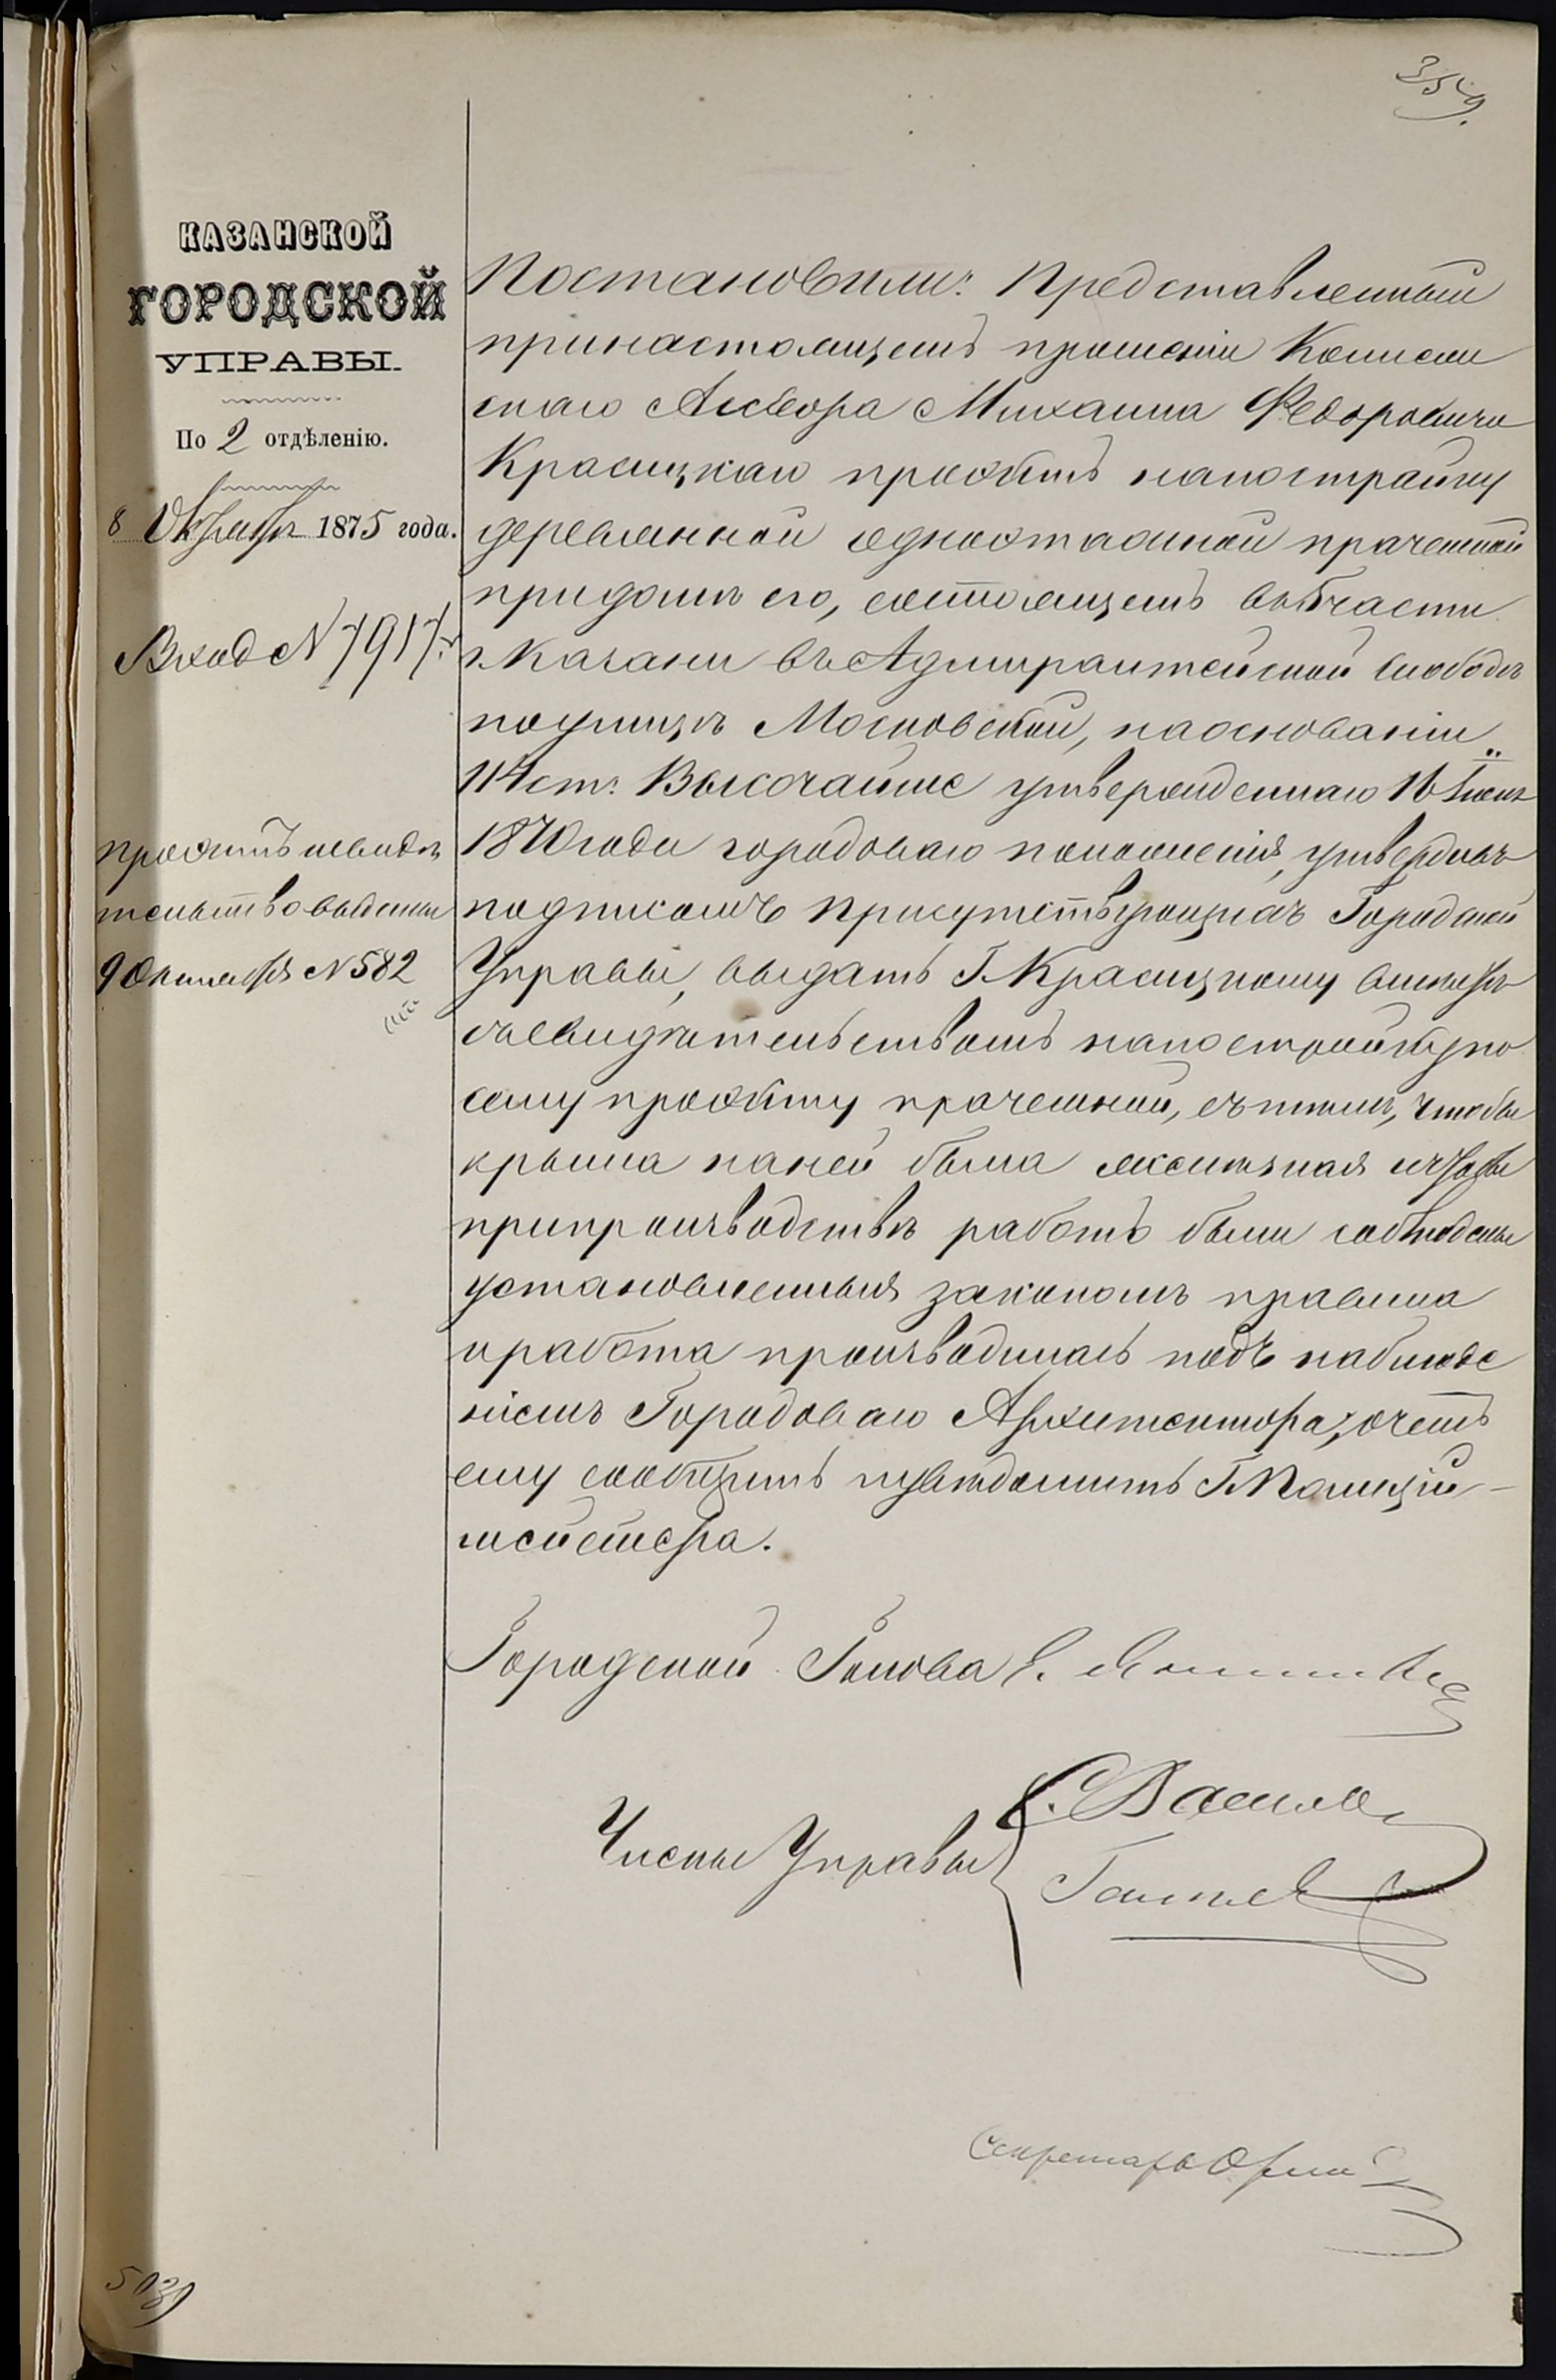 359.
КАЗАНСКОЙ
ГОРОДСКОЙ
УПРАВЫ.
По 2 отдѣленію.
8 Октября 1875 года.
Вход N 7917.
Проэктъ и свидѣ
тельство выданы
9 Октября N 582
Постановили: Представленный
принастоящемъ прошеніи Колеж
скаго Ассесора Михаила Федоровича
Красицкаго проэктъ напостройку
деревянной одноэтажной прачешной
придомѣ его, состоящемъ въ части
г. Казани въ Адмиралтейской слободѣ
поулицѣ Московской, наоснованіи
114 ст. Высочайше утвержденнаго 16 Іюня
1870 года городоваго положенія, утвердивъ
подписомъ присутствующихъ Городской
Управы, выдать Г. Красицкому вмѣстѣ
съ свидѣтельствомъ напостройку по
сему проэкту прачешной, съ тѣмъ, чтобы
крыша наней была желѣзная и чтобы
припроизводствѣ работъ были соблюдены
установленныя закономъ правила
и работа производилась подъ наблюде
ніемъ Городоваго Архитектора, о чемъ
ему сообщить и увѣдомить Г. Полицій-
мейстера.
Городской Голова Е.
Члены Управы
Секретарь
5039